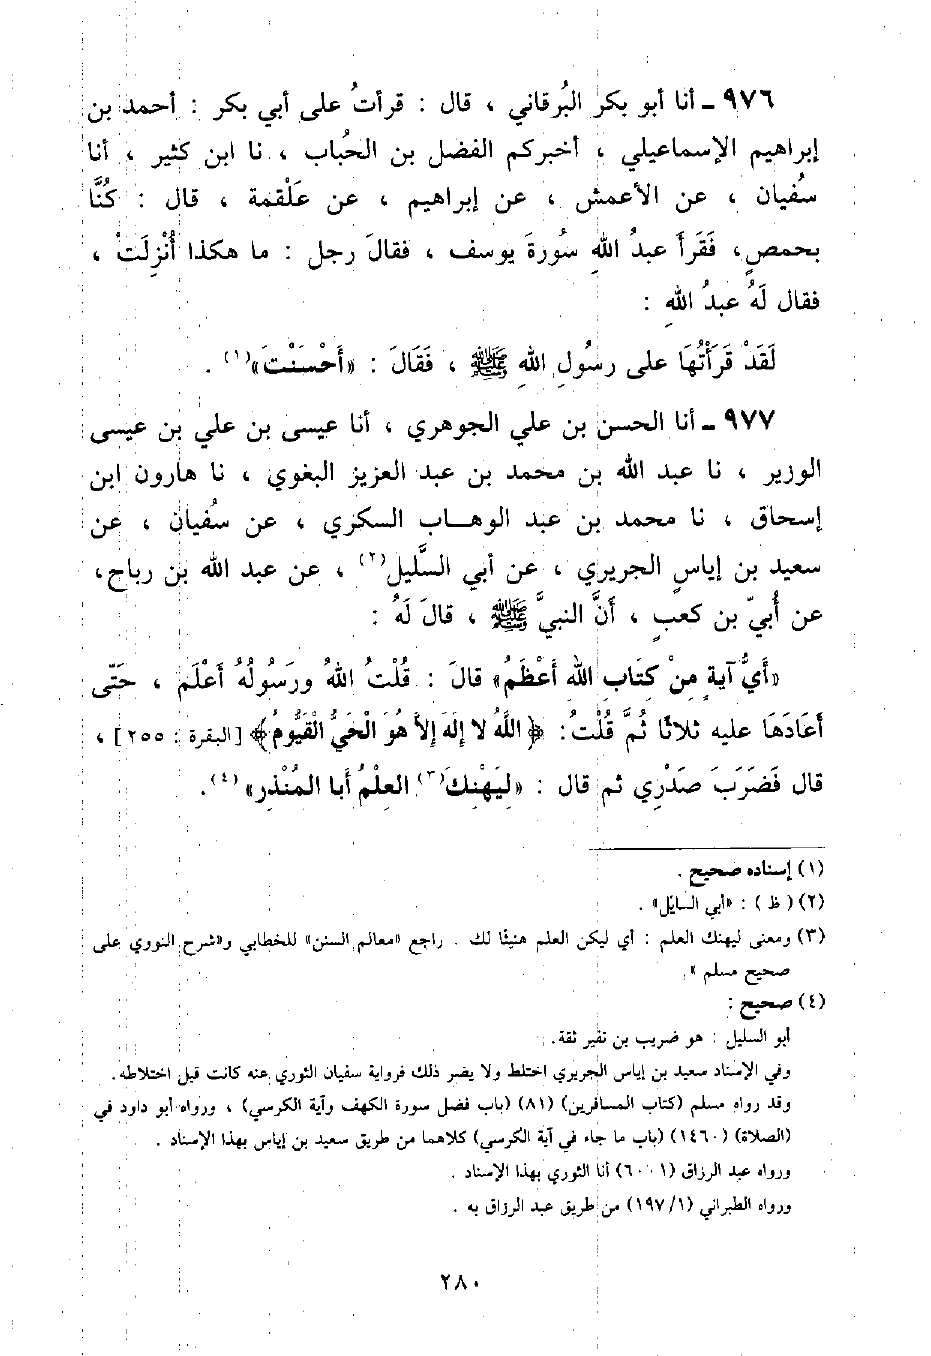 ٩٧٦ ـ أنا أبو بكر البُرقاني ، قال : قرأتُ على أبي بكر : أحمد بن
إبراهيم الإسماعيلي ، أخبركم الفضل بن الحُباب ، نا ابن كثير ، أنا
سُفيان ، عن الأعمش ، عن إبراهيم ، عن عَلْقمة ، قال : كُنَّا
بحمصٍ، فَقَرأَ عبدُ اللهِ سُورةَ يوسف ، فقالَ رجل : ما هكذا أُنْزِلَتْ ،
فقال لَهُ عبدُ اللهِ :
لَقَدْ قَرَأْتُهَا على رسُولِ اللهِ ﷺ ، فَقَالَ : «أَحْسَنْتَ»(١) .
٩٧٧ ـ أنا الحسن بن علي الجوهري ، أنا عيسى بن علي بن عيسى
الوزير ، نا عبد الله بن محمد بن عبد العزيز البغوي ، نا هارون ابن
إسحاق ، نا محمد بن عبد الوهاب السكري ، عن سُفيان ، عن
سعيد بن إياسٍ الجريري ، عن أبي السَّليل(٢) ، عن عبد الله بن رباح،
عن أُبيّ بن كعبٍ ، أنَّ النبيَّ ﷺ ، قالَ لَهُ :
«أَيُّ آيةٍ مِنْ كِتَاب الله أعْظَمُ» قالَ : قُلْتُ اللهُ ورَسُولُهُ أعْلَم ، حتّى
أعَادَهَا عليه ثلاثًا ثُمَّ قُلْتُ: ﴿اللَّهُ لا إلَهَ إلاَّ هُوَ الْحَيُّ الْقَيُّومُ﴾ [البقرة : ٢٥٥] ،
قال فَضَرَبَ صَدْرِي ثم قال : «لِيَهْنِكَ(٣) العِلْمُ أبا المُنْذر»(٤).
(١) إسناده صحيح .
(٢) ( ظ ) : «أبي السايل» .
(٣) ومعنى ليهنك العلم : أي ليكن العلم هنيئًا لك . راجع «معالم السنن» للخطابي و«شرح النووي على
صحيح مسلم » .
(٤) صحيح :
أبو السليل : هو ضريب بن نقير ثقة .
وفي الإسناد سعيد بن إياس الجريري اختلط ولا يضر ذلك فرواية سفيان الثوري عنه كانت قبل اختلاطه .
وقد رواه مسلم (كتاب المسافرين) (٨١) (باب فضل سورة الكهف وآية الكرسي) ، ورواه أبو داود في
(الصلاة) (١٤٦٠) (باب ما جاء في آية الكرسي) كلاهما من طريق سعيد بن إياس بهذا الإسناد .
ورواه عبد الرزاق (٦٠٠١) أنا الثوري بهذا الإسناد .
ورواه الطبراني (١/ ١٩٧) من طريق عبد الرزاق به .
٢٨٠